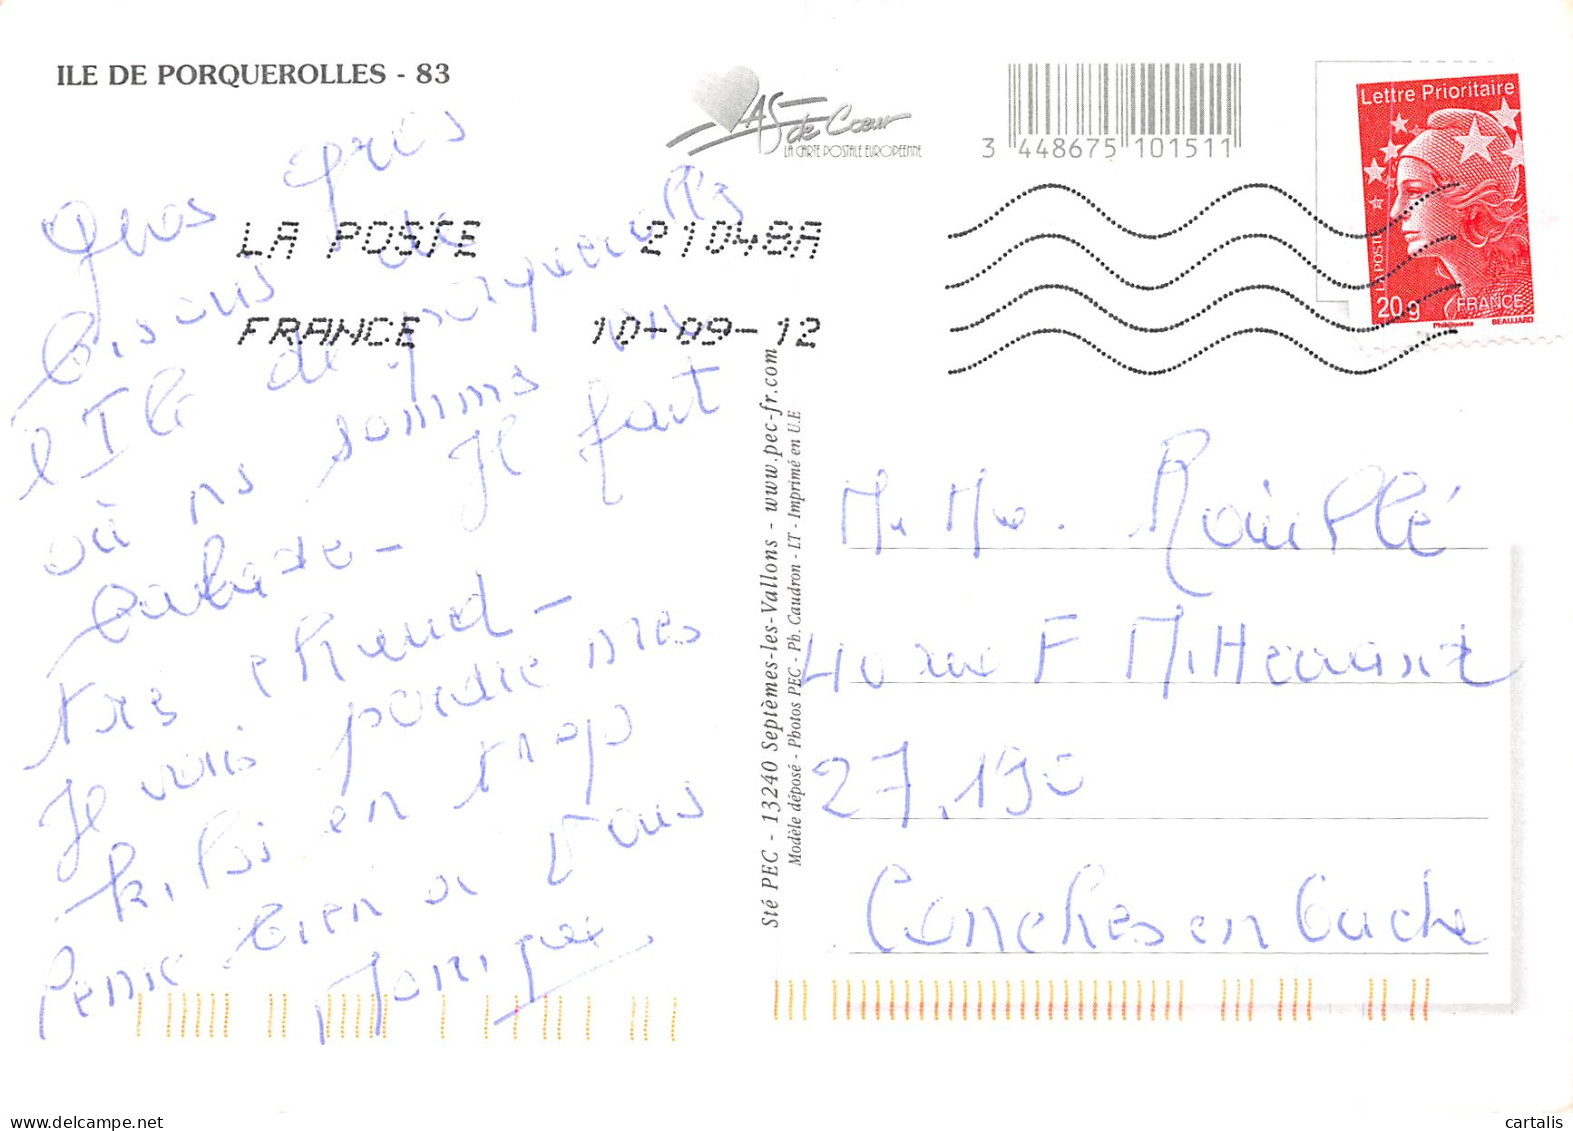 ILE DE PORQUEROLLES - 83
AS de Cœur
LA CARTE POSTALE EUROPEENNE
3 448675 101511
Lettre Prioritaire
LA POSTE
20g FRANCE
Philaposte BEAUJARD
LA POSTE 21048A
FRANCE 10-09-12
Gros gros
bisous de
l'Ile de porquerolls
où ns somms en
balade - Il fait
très chaud -
Je vais perdre mes
kilos en trop
Pense bien à vous
Monique
Sté PEC - 13240 Septèmes-les-Vallons - www.pec-fr.com
Modèle déposé - Photos PEC - Ph. Caudron - LT - Imprimé en U.E
M. Me.
40 rue F Mitterrand
27.190
Conches en Ouche
cartalis
delcampe.net